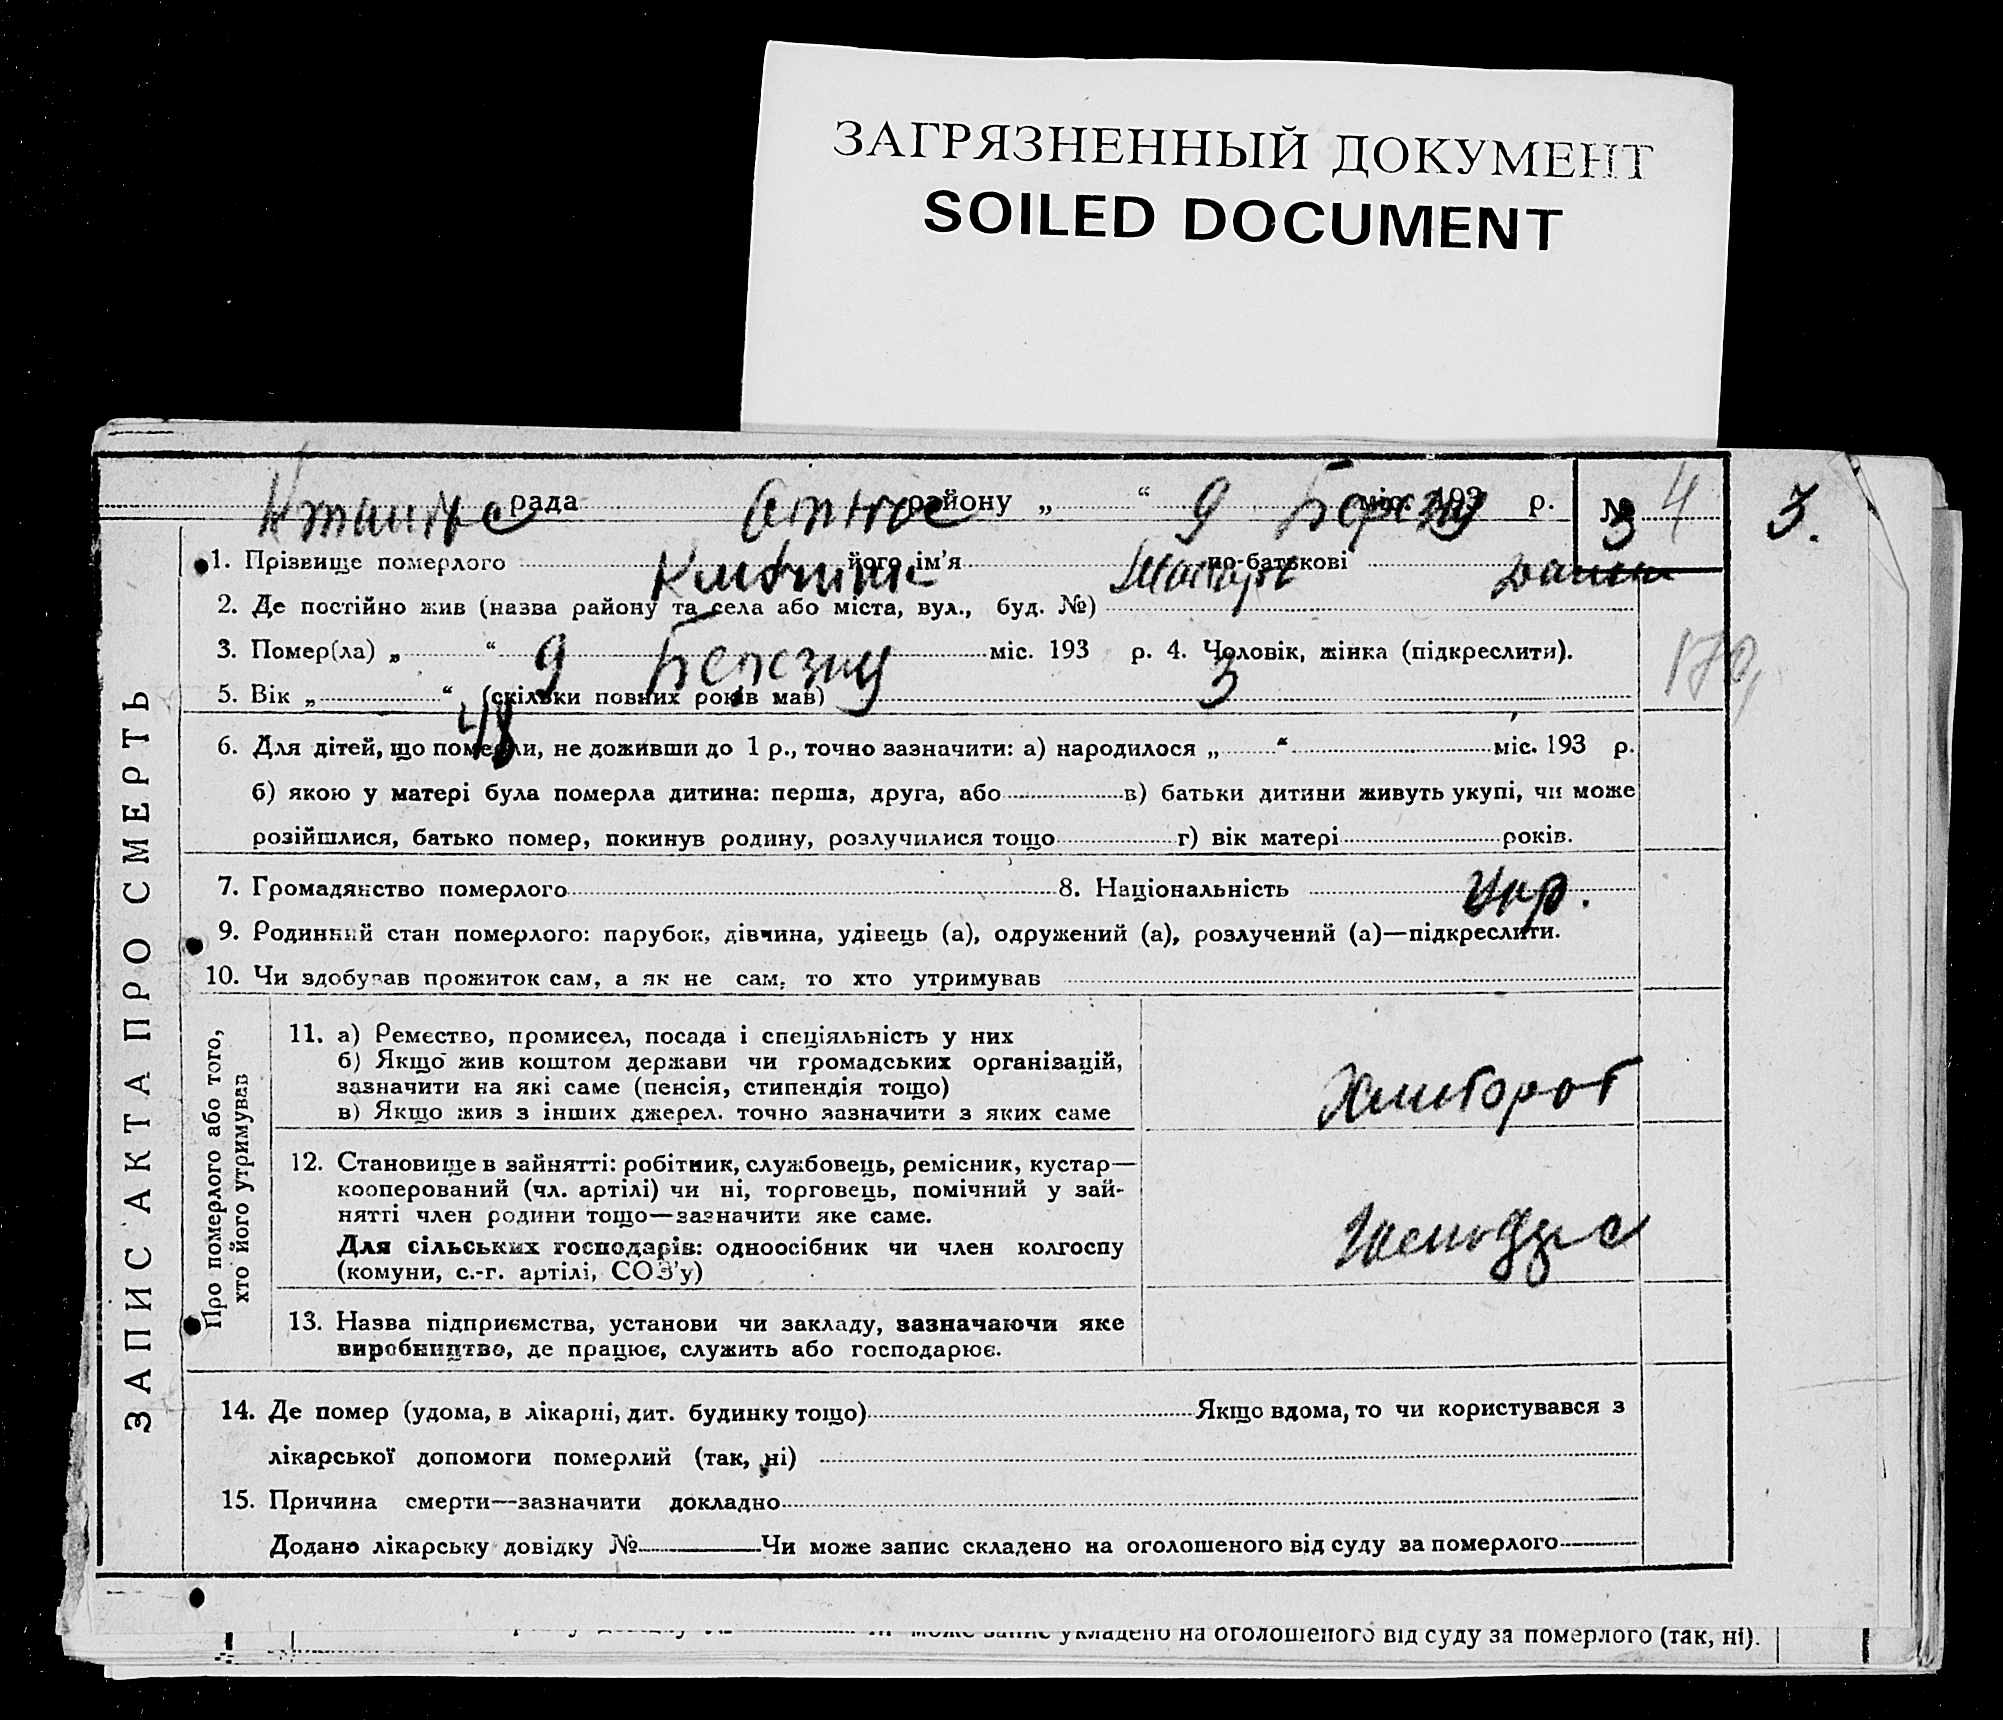 ЗАГРЯЗНЕННЫЙ ДОКУМЕНТ
SOILED DOCUMENT
рада району „ “ 9 міс. 193 р. № 3 4 3.
1. Прізвище померлого його ім'я по-батькові
2. Де постійно жив (назва району та села або міста, вул., буд. №)
3. Помер(ла) „ “ 9 Березня міс. 193 3 р. 4. Чоловік, жінка (підкреслити).
5. Вік „ 48 “ (скільки повних років мав)
6. Для дітей, що померли, не доживши до 1 р., точно зазначити: а) народилося „ “ міс. 193 р.
б) якою у матері була померла дитина: перша, друга, або в) батьки дитини живуть укупі, чи може
розійшлися, батько помер, покинув родину, розлучилися тощо г) вік матері років.
7. Громадянство померлого 8. Національність Укр.
9. Родинний стан померлого: парубок, дівчина, удівець (а), одружений (а), розлучений (а)—підкреслити.
10. Чи здобував прожиток сам, а як не сам, то хто утримував
ЗАПИС АКТА ПРО СМЕРТЬ
Про померлого або того,
хто його утримував
11. а) Ремество, промисел, посада і спеціяльність у них
б) Якщо жив коштом держави чи громадських організацій,
зазначити на які саме (пенсія, стипендія тощо)
в) Якщо жив з інших джерел. точно зазначити з яких саме
Хлибороб
12. Становище в зайнятті: робітник, службовець, ремісник, кустар—
кооперований (чл. артілі) чи ні, торговець, помічний у зай-
нятті член родини тощо—зазначити яке саме.
Для сільських господарів: одноосібник чи член колгоспу
(комуни, с.-г. артілі, СОЗ'у)
13. Назва підприємства, установи чи закладу, зазначаючи яке
виробництво, де працює, служить або господарює.
14. Де помер (удома, в лікарні, дит. будинку тощо) Якщо вдома, то чи користувався з
лікарської допомоги померлий (так, ні)
15. Причина смерти—зазначити докладно
Додано лікарську довідку № Чи може запис складено на оголошеного від суду за померлого
може запис укладено на оголошеного від суду за померлого (так, ні).